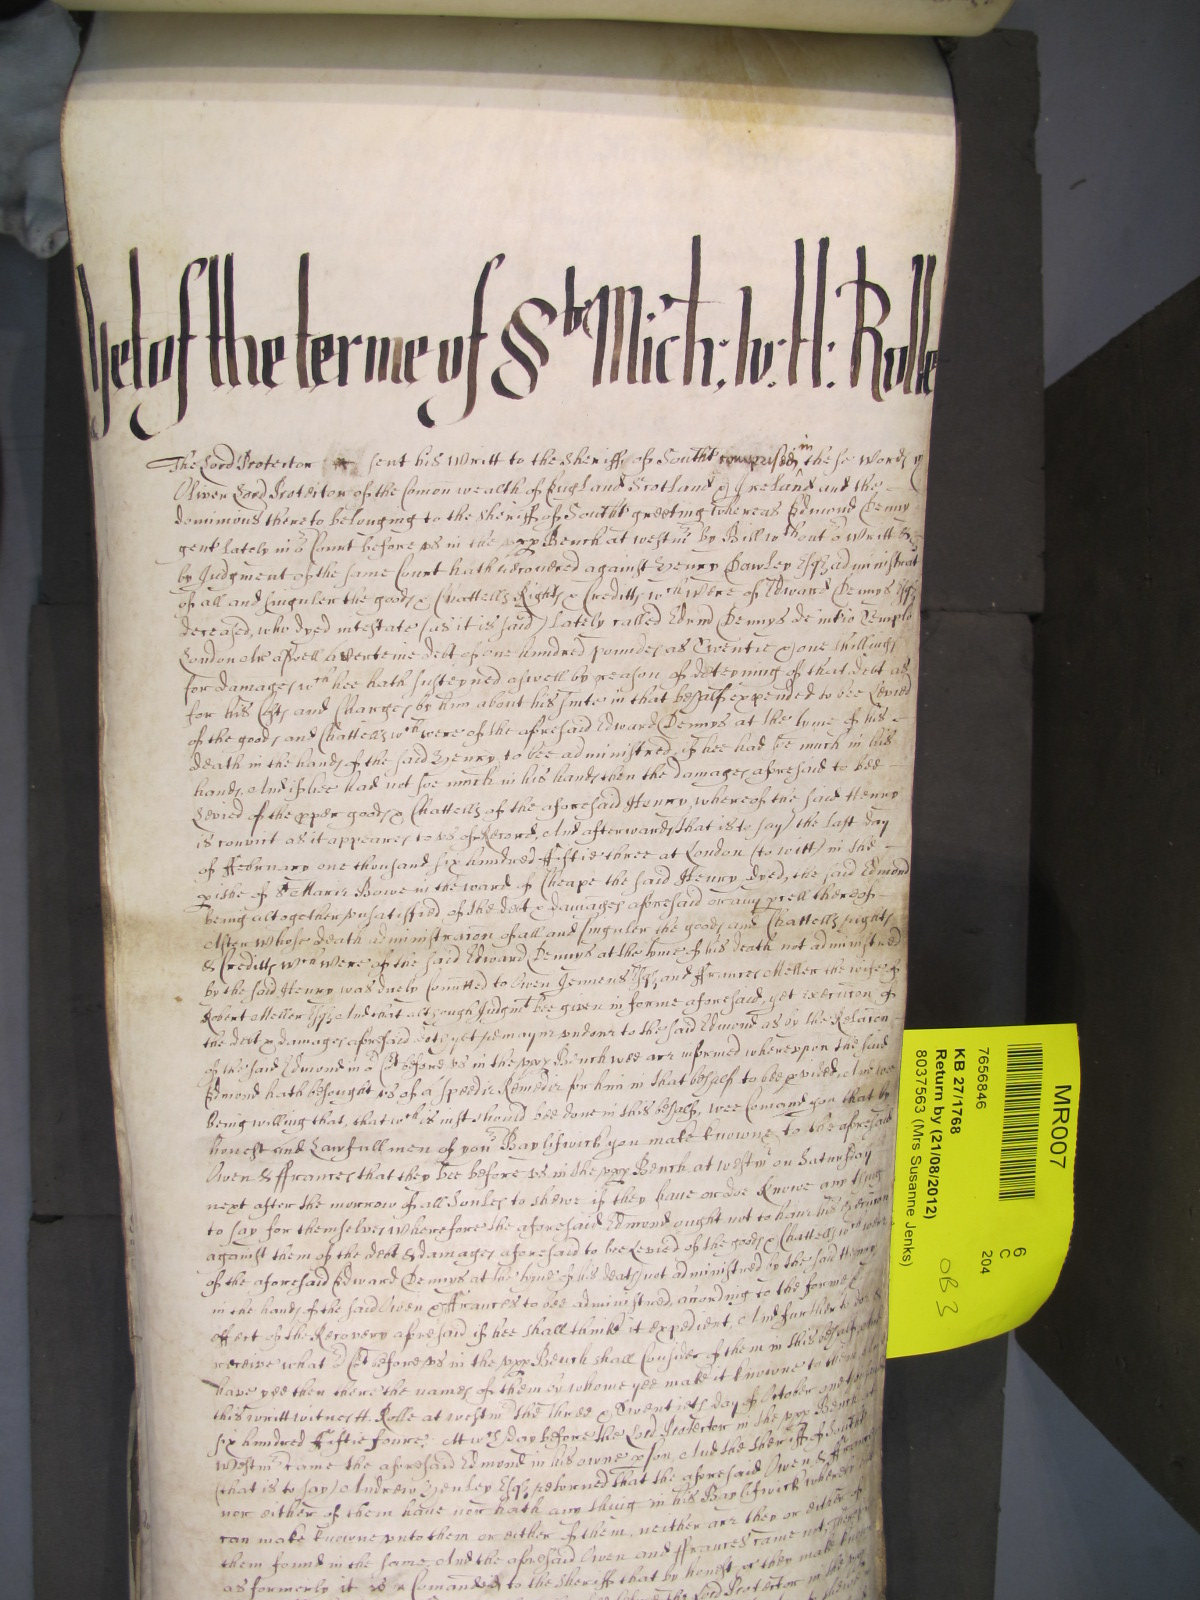 Yet of the terme of St Mich: w: H: Rolle
The Lord Protector sent his Writt to the Sheriff of Southt comprised in these words
Oliver Lord Protector of the Comon wealth of England Scotland & Ireland and the
dominions thereto belonging to the Sheriff of Southt greeting whereas Edmond Dennys
gent lately in o Court before us in the upp Bench at westmr by Bill wthout o writt &
by Judgment of the same Court hath recovered against Henry Dawley Esqz administrat
of all and singuler the goods & Chattells Rights & Creditts wch were of Edward Dennys Esqz
deceased, who dyed intestate (as it is said) lately called Edrd Dennys de Templo
London Ar aswell a certeine debt of one hundred poundes as Twentie & one shillings
for damages wch hee hath susteyned aswell by reason of deteyning of that debt as
for his Costs and Charges by him about his suite in that behalf expended to bee Levied
of the goods and Chattells wch were of the aforesaid Edward Dennys at the tyme of his
death in the hands of the said Henry to bee administred, if hee had soe much in his
hands, And if hee had not soe much in his hands then the damages aforesaid to bee
Levied of the pper goods & Chattells of the aforesaid Henry, whereof the said Henry
is convict as it appeares to us of Record, And afterwards (that is to say) the last day
of ffebruary one thousand six hundred ffiftie three at London (to witt) in the
pishe of St Marie Bowe in the ward of Cheape the said Henry dyed, the said Edmond
being altogether unsatisfied, of the debt & damages aforesaid or any pcell thereof
After whose death administracon of all and singuler the goods and Chattells rights
& Creditts wch were of the said Edward Dennys at the tyme of his death not administred
by the said Henry was duely Comitted to Owen Jennens Esqz and ffrances Meller the wife of
Robert Meller Esqz And that although Judgmt bee given in forme aforesaid, yet execucon of
the debt & damages aforesaid yet remaynes undone to the said Edmond as by the Relacon
of the said Edmond in o Ct before us in the upp Bench wee are informed whereupon the said
Edmond hath besought us of a speedie Remedie for him in that behalf to bee pvided, And wee
being willing that, that wch is just should bee done in this behalf, wee Comand you that by
honest and Lawfull men of your Baylifwick you make knowne to the aforesaid
Owen & ffrances that they bee before us in the upp Bench at westmr on Saturday
next after the morrow of all Soules to shewe if they have or doe knowe any thing
to say for themselves wherefore the aforesaid Edmond ought not to have his execucon
against them of the debt & damages aforesaid to bee Levied of the goods & Chattells wch were
of the aforesaid Edward Dennys at the tyme of his death not administred by the said Henry
in the hands of the said Owen & ffrances to bee administred, according to the forme &
effect of the Recovery aforesaid if hee shall thinke it expedient, And further to doe &
receive what o Ct before us in the upp Bench shall Consider of them in this behalf
have yee then there the names of them by whome yee make it knowne to them
this writt witnes H. Rolle at westmr the three & Twentieth day of October one thousand
six hundred ffiftie foure, Att wch day before the Lord Protector in the upp Bench at
westmr came the aforesaid Edmond in his owne pson, And the Sheriff of Southt
(that is to say) Andrew Henley Esqz retorned that the aforesaid Owen & ffrances
nor either of them have nor hath any thing in his Baylifwick whereby
can make knowne unto them or either of them, neither are they or either of
them found in the same, And the aforesaid Owen and ffrances came not
as formerly it is Comanded to the Sheriff that by honest &c they make knowne
the Lord Protector in the upp
MR007
7656846
KB 27/1768
Return by (21/08/2012)
8037563 (Mrs Susanne Jenks)
6
C
204
OB 3